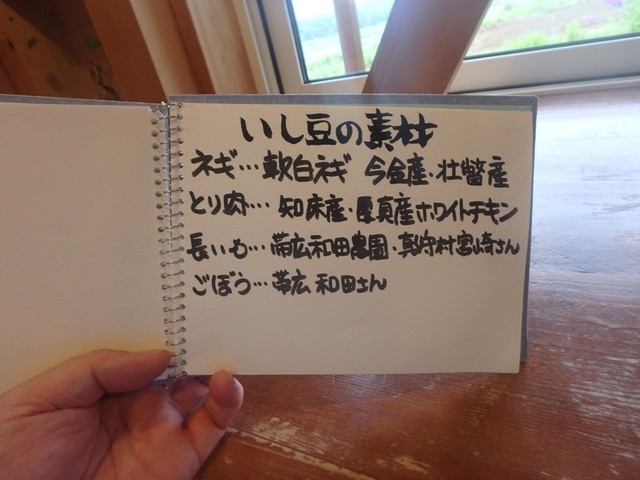 いし豆の素材
ネギ…軟白ネギ 今金産・壮瞥産
とり肉…知床産・厚真産ホワイトチキン
長いも…帯広和田農園・真狩村宮崎さん
ごぼう…帯広 和田さん